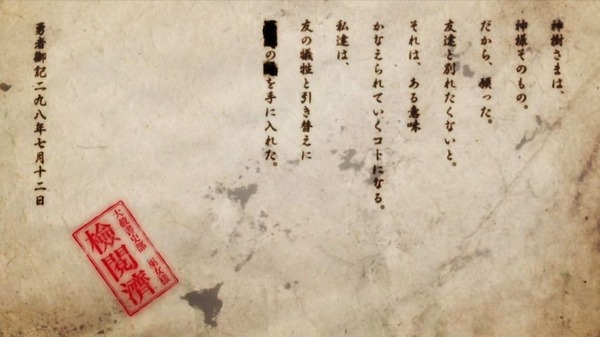 神樹さまは、
神様そのもの。
だから、願った。
友達と別れたくないと。
それは、ある意味
かなえられていくコトになる。
私達は、
友の犠牲と引き替えに
の を手に入れた。
勇者御記二九八年七月十二日
大赦書史部
検閲済